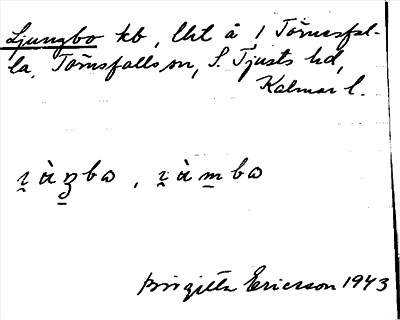 Ljungbo kb, lht å 1 Törnesfal-
la, Törnsfalls sn, S. Tjusts hd,
Kalmar l.
ɩ̯ àŋ̱bɷ , ɩ̯ àm̱bɷ
Birgitta Ericsson 1943